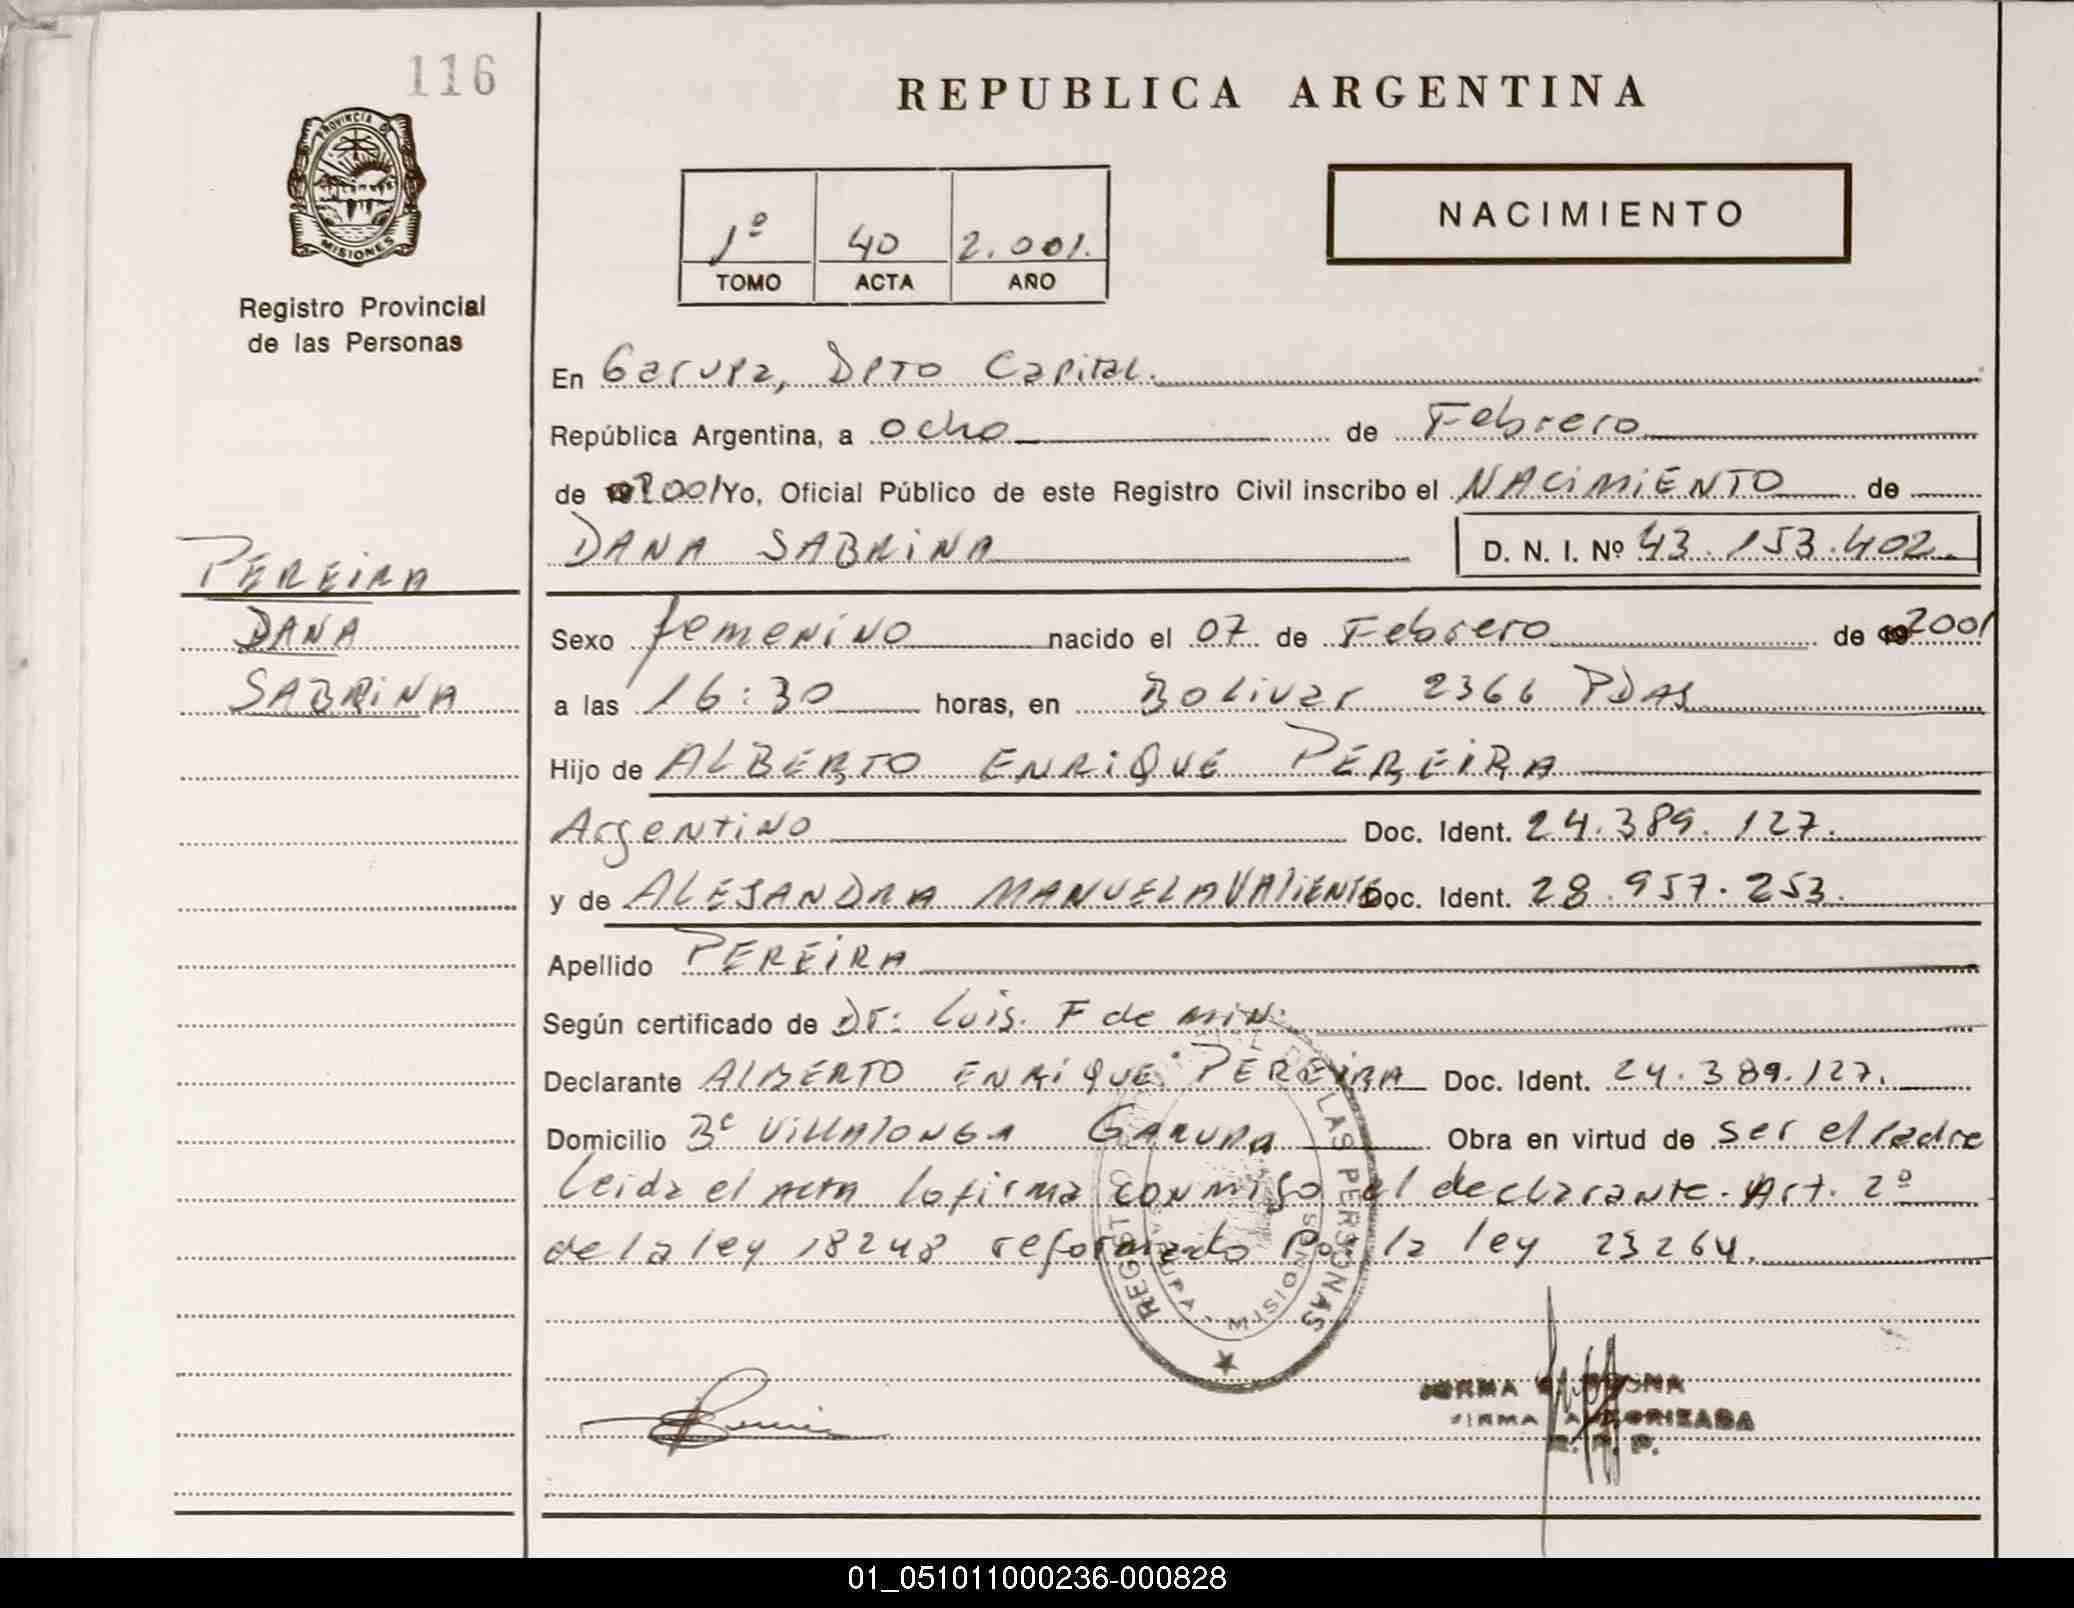 116
REPUBLICA ARGENTINA
PROVINCIA DE
MISIONES
Registro Provincial
de las Personas
1º 40 2.001.
TOMO ACTA AÑO
NACIMIENTO
En Garupa, Dpto Capital.
República Argentina, a ocho de Febrero
de 2001 Yo, Oficial Público de este Registro Civil inscribo el NACIMIENTO de
DANA SABRINA D. N. I. Nº 43.153.402.
PEREIRA
DANA
SABRINA
Sexo femenino nacido el 07 de Febrero de 2001
a las 16:30 horas, en Bolivar 2366 PDAS
Hijo de ALBERTO ENRIQUE PEREIRA
Argentino Doc. Ident. 24.389.127.
y de ALEJANDRA MANUELA VALIENTE Doc. Ident. 28.957.253.
Apellido PEREIRA
Según certificado de Dr: Luis. F de Min.
Declarante ALBERTO ENRIQUE PEREIRA Doc. Ident. 24.389.127.
Domicilio Bº VILLALONGA GARUPA Obra en virtud de ser el padre
Leida el acta la firma conmigo el declarante. Art. 2º
de la ley 18248 reformado por la ley 23264.
LAS PERSONAS
GARUPA - MISIONES
FIRMA AUTORIZADA
R. P. P.
01_051011000236-000828